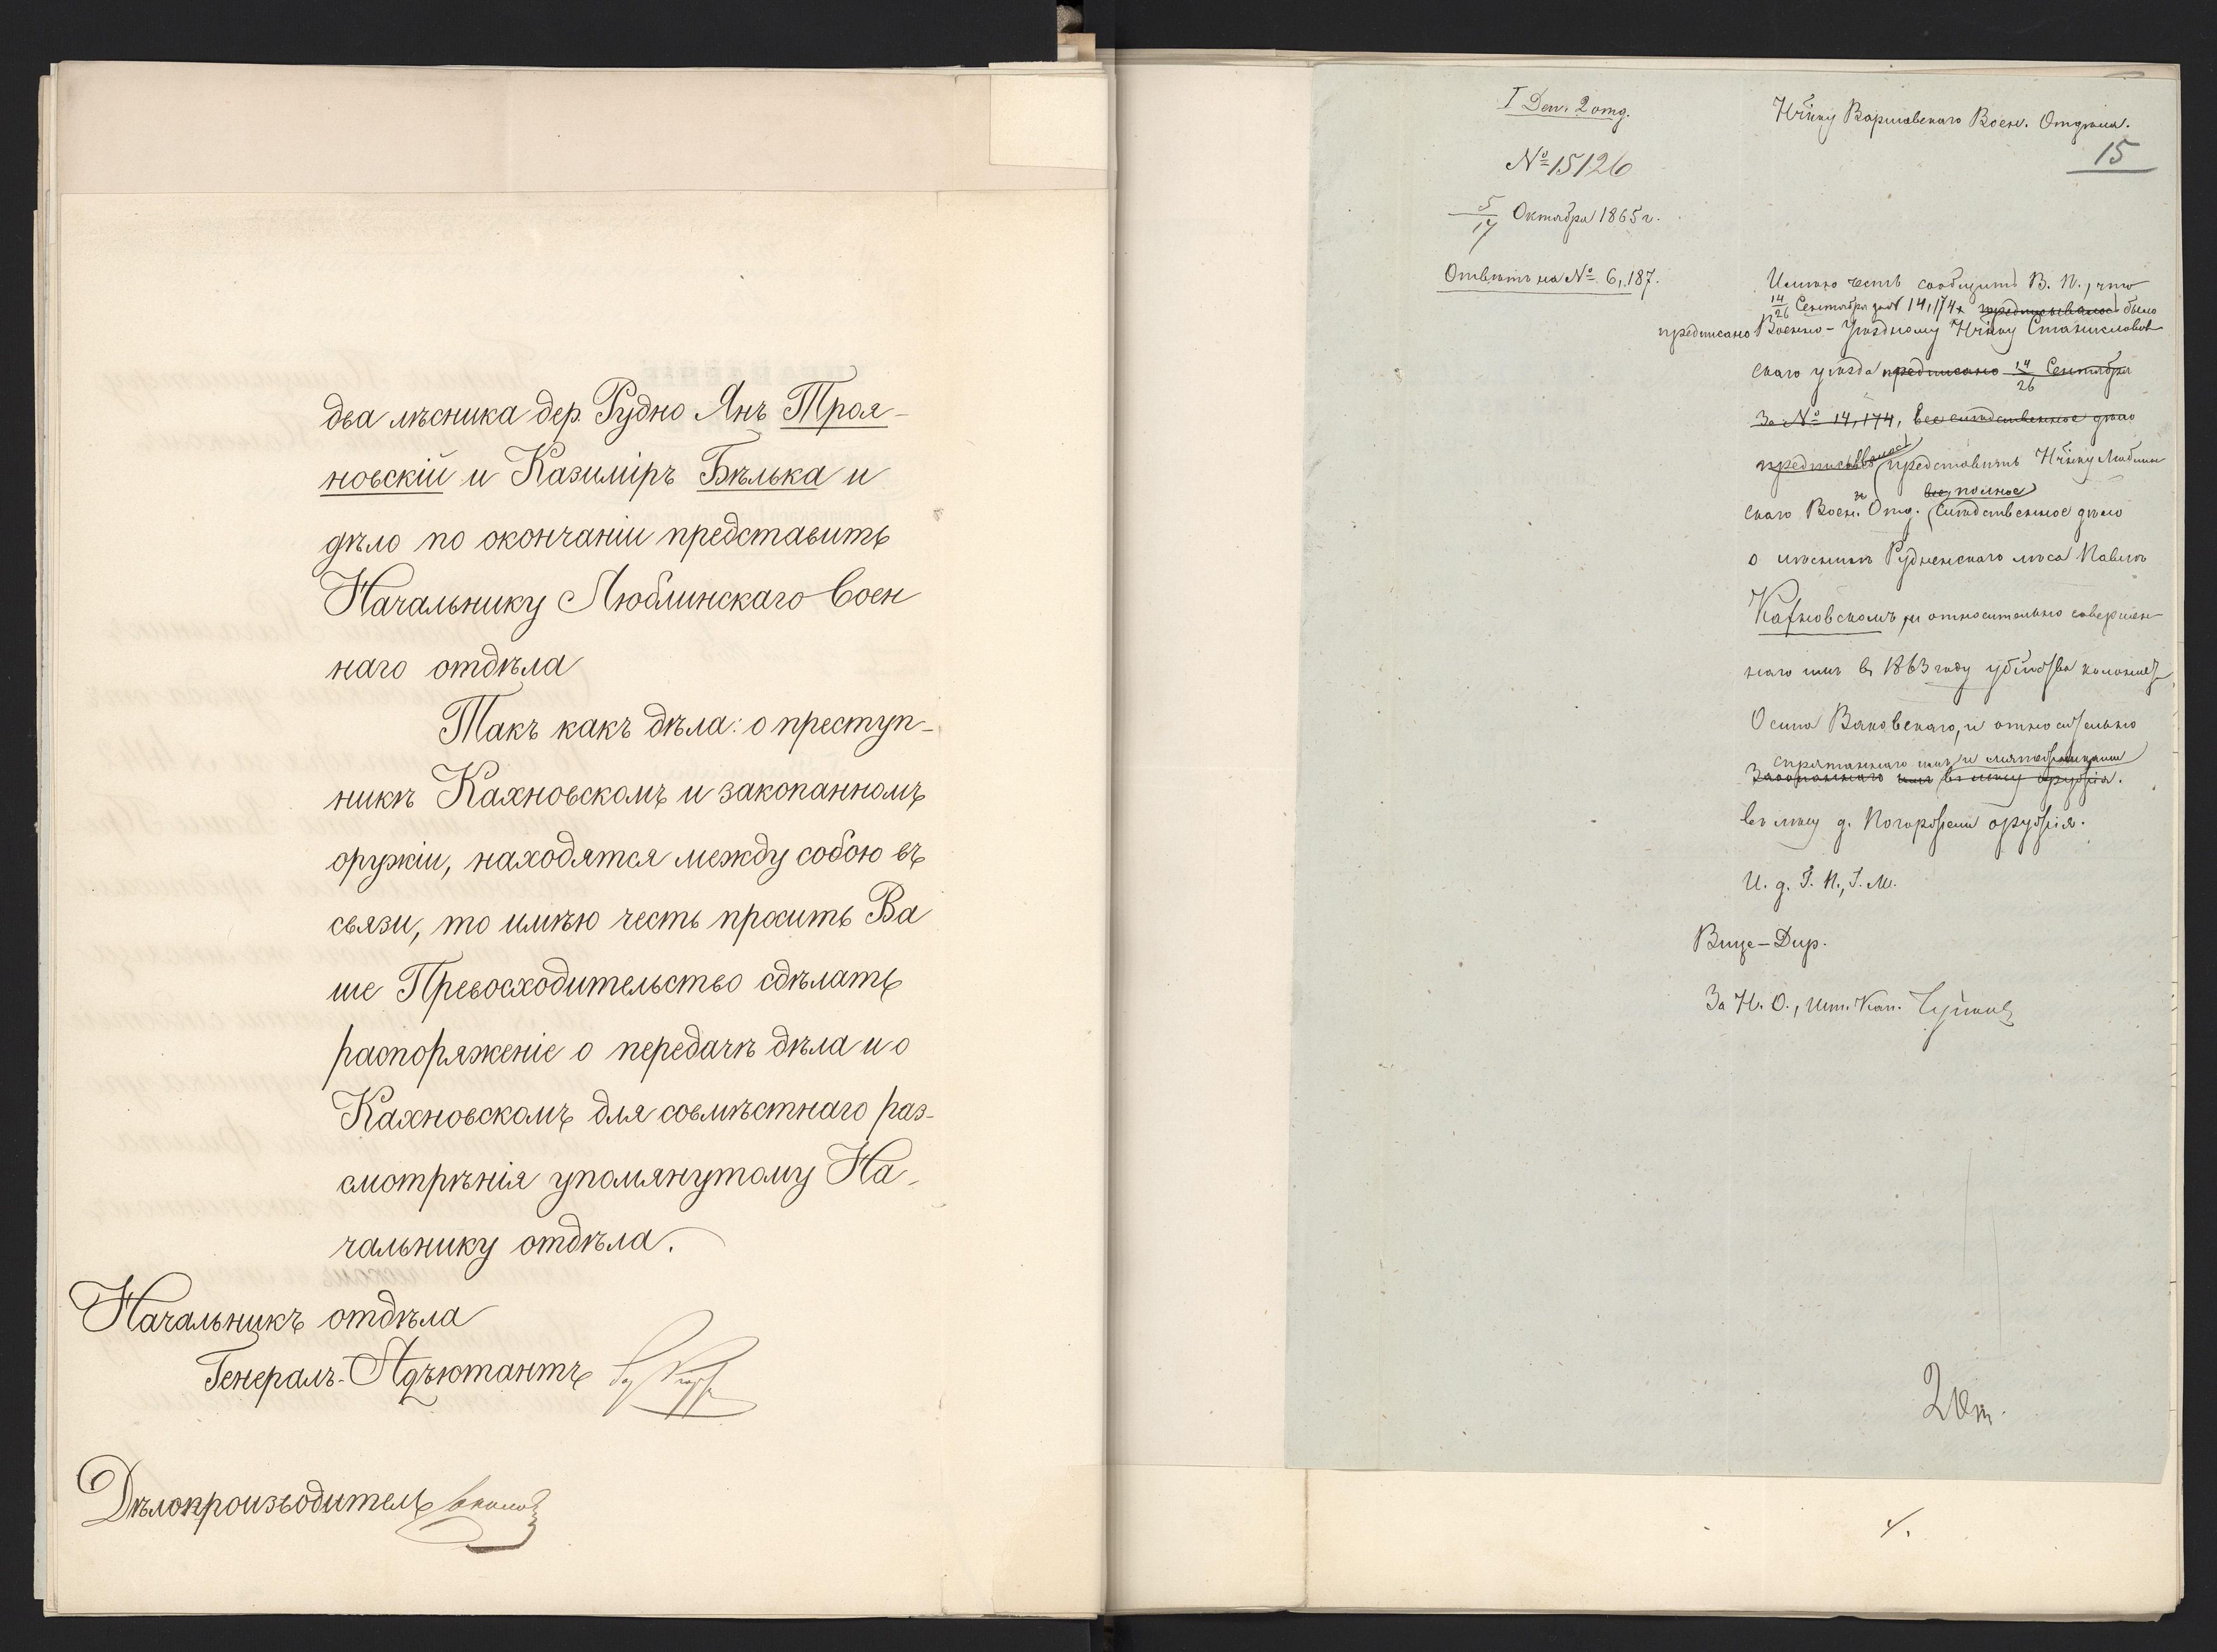 два лѣсника дер. Рудно Янъ Троя-
новскій и Казиміръ Бѣлька и
дѣло по окончаніи представить
Начальнику Люблинскаго Воен
наго отдѣла
Такъ какъ дѣла: о преступ-
никѣ Кахновскомъ и закопанномъ
оружіи, находятся между собою въ
связи, то имѣю честь просить Ва
ше Превосходительство сдѣлать
распоряженіе о передачѣ дѣла и о
Кахновскомъ для совмѣстнаго раз-
смотрѣнія упомянутому На-
чальнику отдѣла.
Начальникъ отдѣла
Генералъ-Адъютантъ
Дѣлопроизводитель
I Деп. 2 отд.
№ 15126
5/17 Октября 1865 г.
Отвѣтъ на № 6,187.
Нч͠ику Варшавскаго Воен. Отдѣла.
15
Имѣю честь сообщить В. П., что
14/26 Сентября за № 14,174, предписывалось было
предписано Военно-Уѣздному Нч͠ику Станиславов
скаго уѣзда предписано 14/26 Сентября
За № 14,174, все слѣдственное дѣло
представить Нч͠ику Люблин
скаго Воен. Отд. все полное слѣдственное дѣло
о лѣсникѣ Рудненскаго лѣса Павлѣ
Кахновскомъ, и относительно совершен
наго имъ въ 1863 году убійства колониста
Осипа Вяковскаго, и относительно
спрятаннаго имъ и мятежниками
Закопаннаго имъ въ лѣсу оружія.
въ лѣсу д. Погоржели оружія.
И. д. Г. П., Г. М.
Вице-Дир.
За Н. О., Шт. Кап.